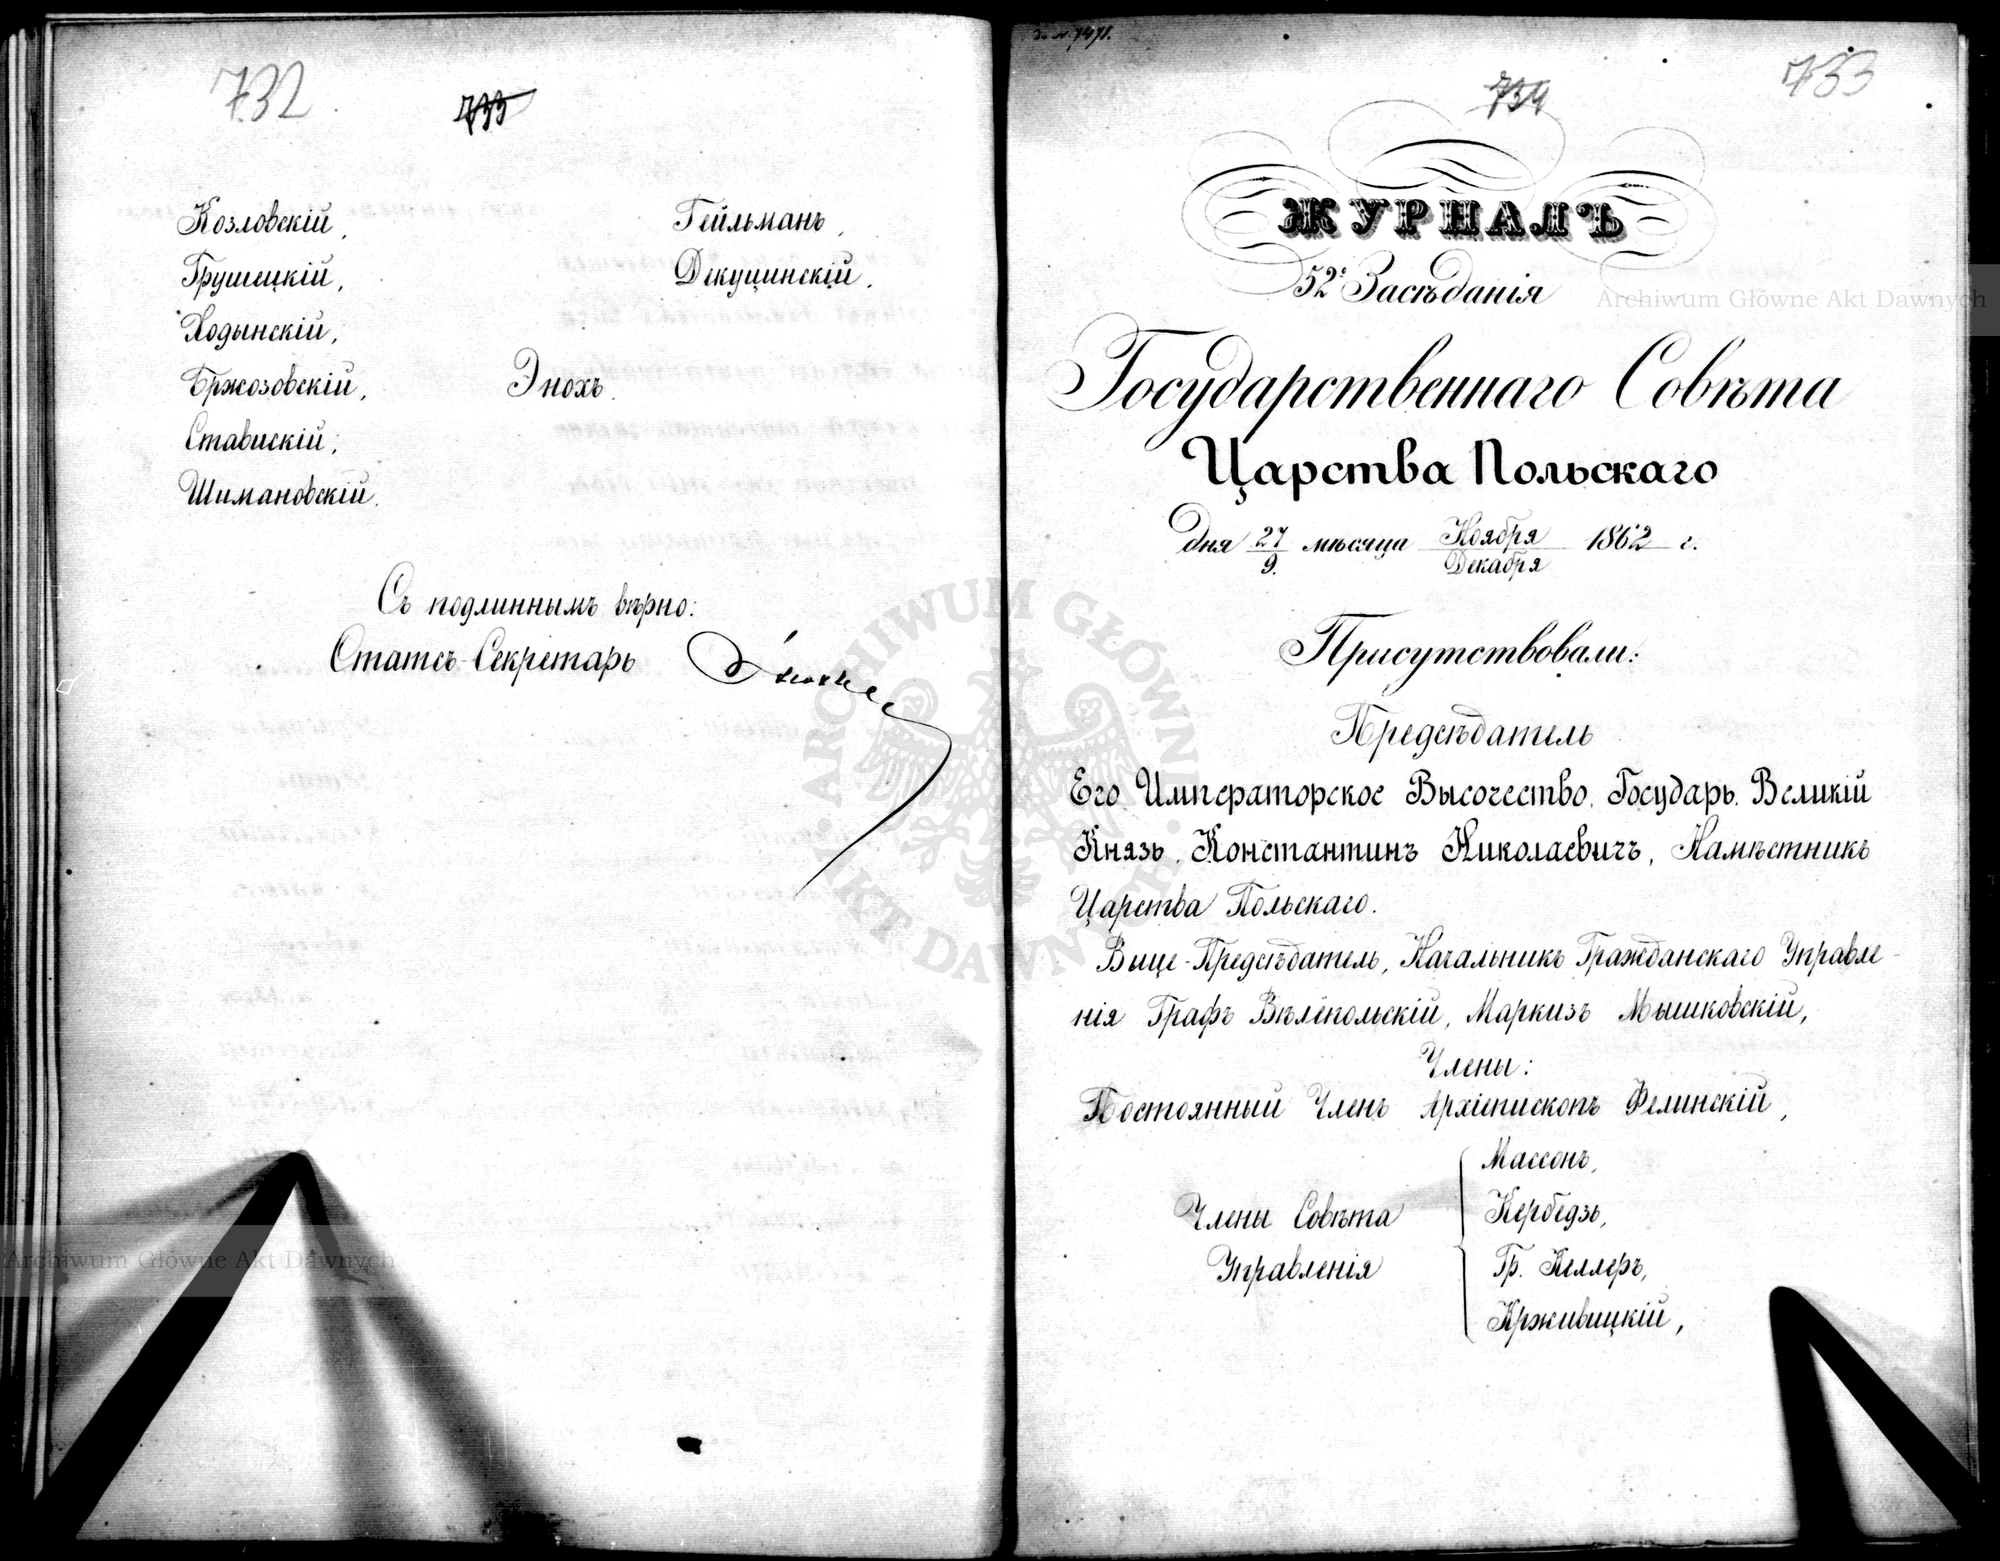 732
733
Козловскій,
Грушецкій,
Ходынскій,
Бржозовскій,
Ставискій,
Шимановскій.
Гейльманъ,
Декуцинскій.
Энохъ.
Съ подлиннымъ вѣрно:
Статсъ-Секретарь
734
733
ЖУРНАЛЪ
52го Засѣданія
Государственнаго Совѣта
Царства Польскаго
Дня 27/9. мѣсяца Ноября/Декабря 1862 г.
Присутствовали:
Предсѣдатель
Его Императорское Высочество, Государь Великій
Князь, Константинъ Николаевичъ, Намѣстникъ
Царства Польскаго.
Вице-Предсѣдатель, Начальникъ Гражданскаго Управле-
нія Графъ Вѣлёпольскій, Маркизъ Мышковскій,
Члены:
Постоянный Членъ Архіепископъ Фелинскій,
Члены Совѣта
Управленія
Массонъ,
Кербедзь,
Гр. Келлеръ,
Крживицкій,
Archiwum Główne Akt Dawnych
Archiwum Główne Akt Dawnych
ARCHIWUM GŁÓWNE AKT DAWNYCH